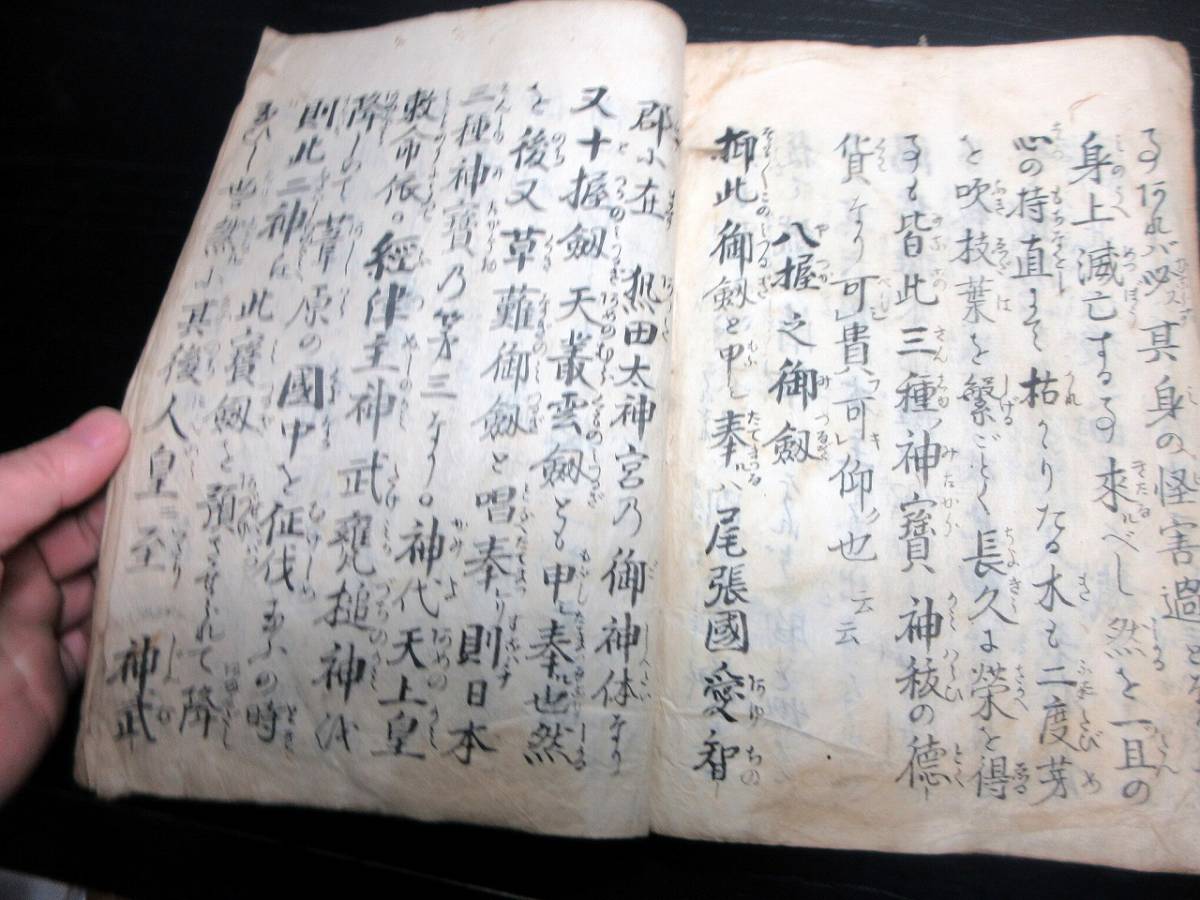 事阿れバ必ス其身の怪害過と
身上滅亡する事来ルべし然を一旦の
心の持直まて枯かりたる木も二度芽
を吹枝葉を繁ごとく長久に栄を得
事も皆此三種神寶神秡の徳
貨なり可貴可レ仰也云云
八握之御劔
抑此御劔と申シ奉ルハ尾張國愛智
郡ニ在熱田太神宮乃御神体なり
又十握劔天叢雲劔とも申シ奉ル也然
を後又草薙御劔と唱奉り則日本
三種神寶乃第三なり。神代天上皇
敕命依。經津主神武甕槌神代
降しめて葦原の國中を征伐玉ふの時
則此二神に此寳劔を預させられて降
玉ひし也然ニ其後人皇至神武